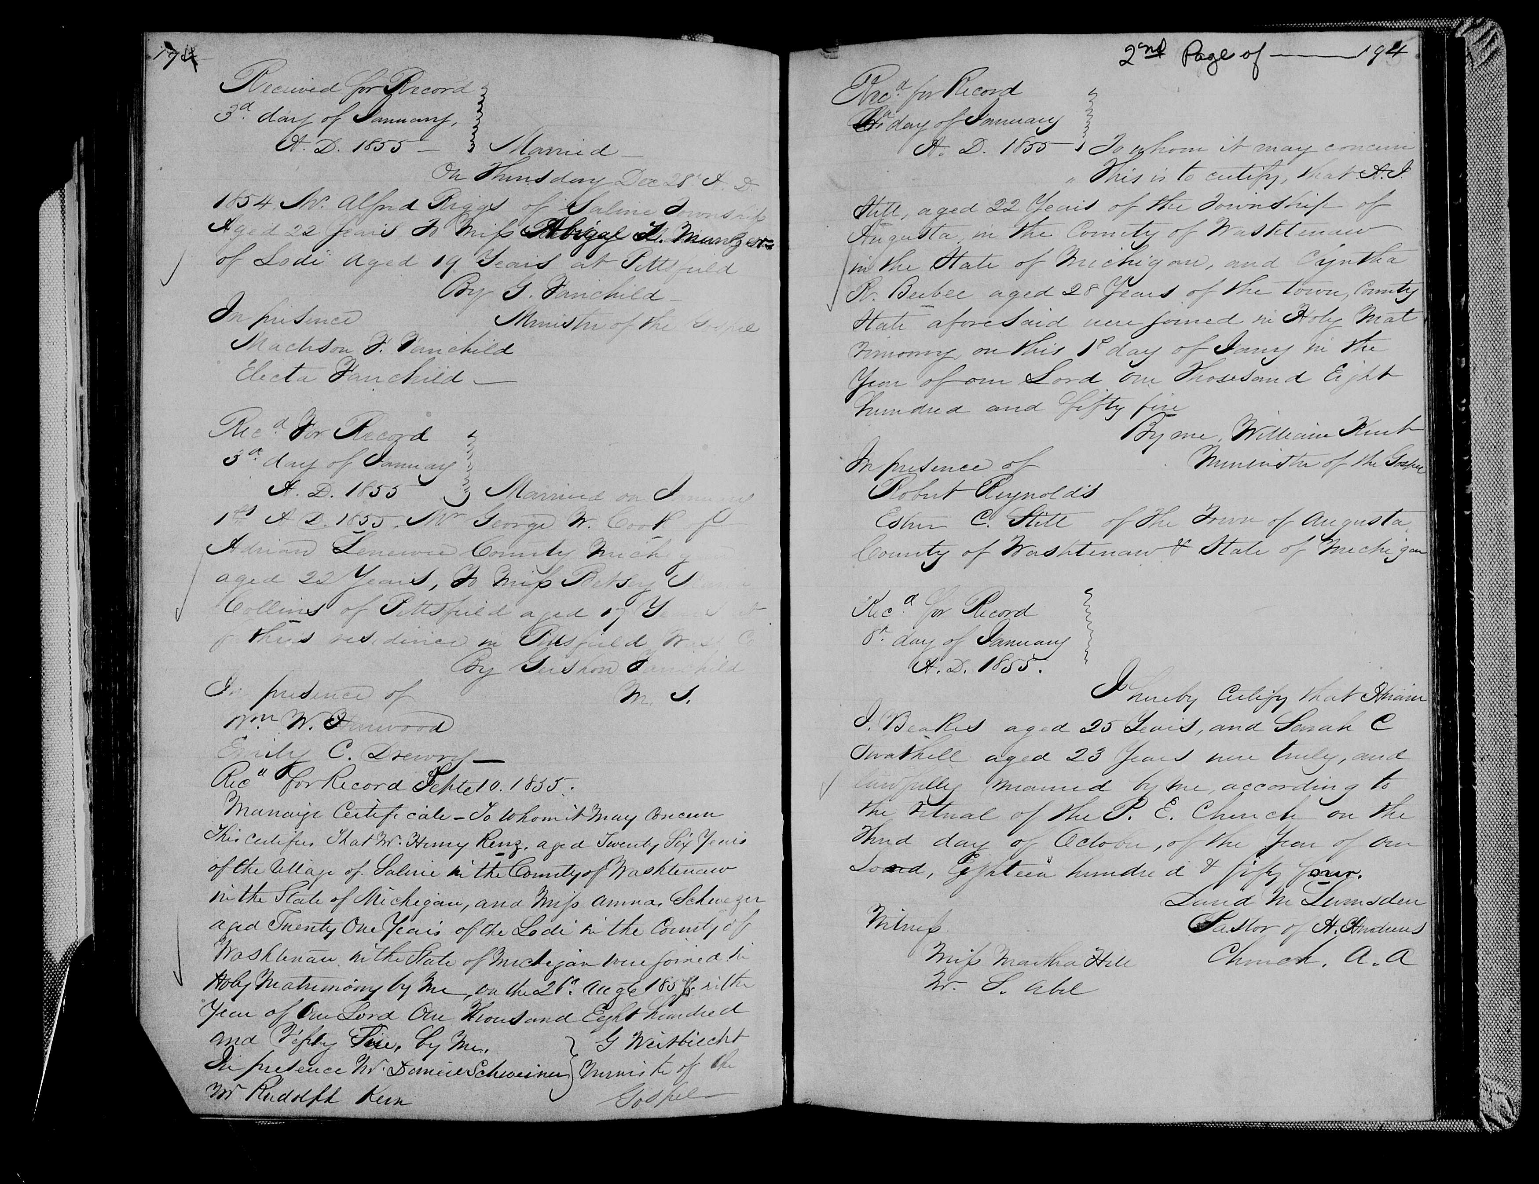 194
Received for Record
3d day of January,
A. D. 1855 — Married —
On Thursday Dec 28th A. D
1854 Mr. Alfred Biggs of Saline Township
Aged 22 Years to Miss Abigal D.
of Lodi Aged 19 Years at Pittsfield
By G. Fairchild
In presence Minister of the Gospel
Fairchild
Electa Fairchild —
Recd For Record
3d day of January
A. D. 1855 Married on
1st A D. 1855. Mr George W. Cook of
Adrian Lenewee County Mich
aged 22 Years, to Miss Betsey
Collins of Pittsfield aged 17
of theirs residence in Pittsfield
By Fairchild
In presence of M. G.
Wm W.
Emily C.
Recd for Record Septe 10. 1855.
Marraige Certificate – To whom it May Concern
This certifies That Mr. Henry Renz. aged Twenty Six Years
of the Village of Saline in the County of Washtenaw
in the State of Michigan, and Miss Anna Schweizer
aged Twenty One Years of the Lodi in the County of
Washtenaw in the State of Michigan were joined in
Holy Matrimony by Me, on the Auge 1855. in the
Year of Our Lord One Thousand Eight hundred
and Fifty Five, by Me,
In presence Mr. Minister of the
Mr Rudolph Gospel —
2nd Page of —— 194
Recd for Record
day of January
A. D. 1855 To whom it may concern
This is to certify, that A. J.
Still, aged 22 Years of the Township of
Augusta in the County of Washtenaw
in the State of Michigan, and Cyntha
Beebee aged 28 Years of the town, County
State aforesaid were joined in Holy Mat
rimony on this 1st day of Jany in the
Year of our Lord one Thousand Eight
hundred and fifty five
By me, William
In presence of Minister of the Gospel
Robert Reynolds
C. Still of the Town of Augusta
County of Washtenaw & State of Michigan
Recd for Record
8th day of January
A. D. 1855.
I hereby certify that Hiram
J. Beakes aged 25 Years, and Sarah C
aged 23 Years were truly, and
lawfully married by me, according to
the ritual of the P. E. Church on the
Third day of October, of the Year of our
Lord, Eighteen hundred & fifty four.
Lumsden
Witness Pastor of St. Andrews
Miss Martha Hill Church. A. A
Mr. S. Abel